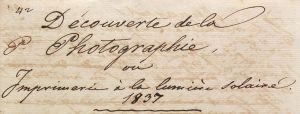 42
Découverte de la
Photographie,
ou
Imprimerie à la lumière solaire.
1837